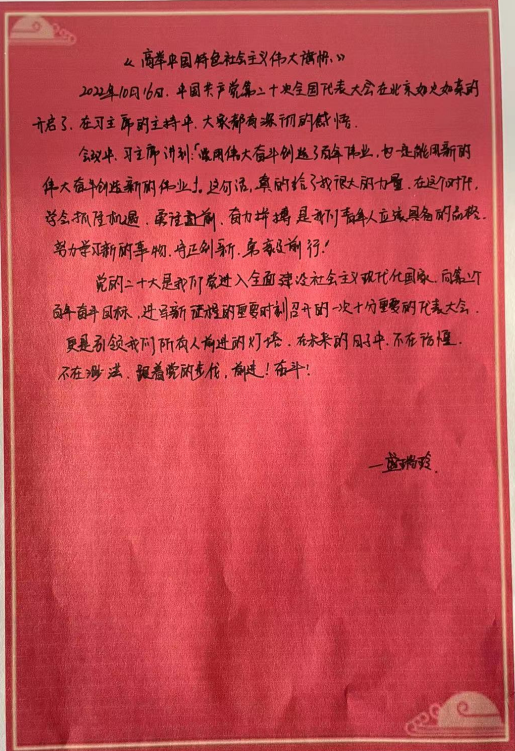 《高举中国特色社会主义伟大旗帜》
2022年10月16日，中国共产党第二十次全国代表大会在北京如火如荼的
开启了，在习主席的主持中，大家都有深切的感悟。
会议中，习主席讲到：「党用伟大奋斗创造了百年伟业，也一定能用新的
伟大奋斗创造新的伟业」。这句话，真的给了我很大的力量，在这个时代，
学会抓住机遇，勇往直前，奋力拼搏是我们青年人应该具备的品格，
努力学习新的事物，守正创新，勇毅前行！
党的二十大是我们党进入全面建设社会主义现代化国家，向第二个
百年奋斗目标，进军新征程的重要时刻召开的一次十分重要的代表大会，
更是引领我们所有人前进的灯塔，在未来的日子中，不在彷徨，
不在迷茫，跟着党的步伐，前进！奋斗！
—盛瑞玲